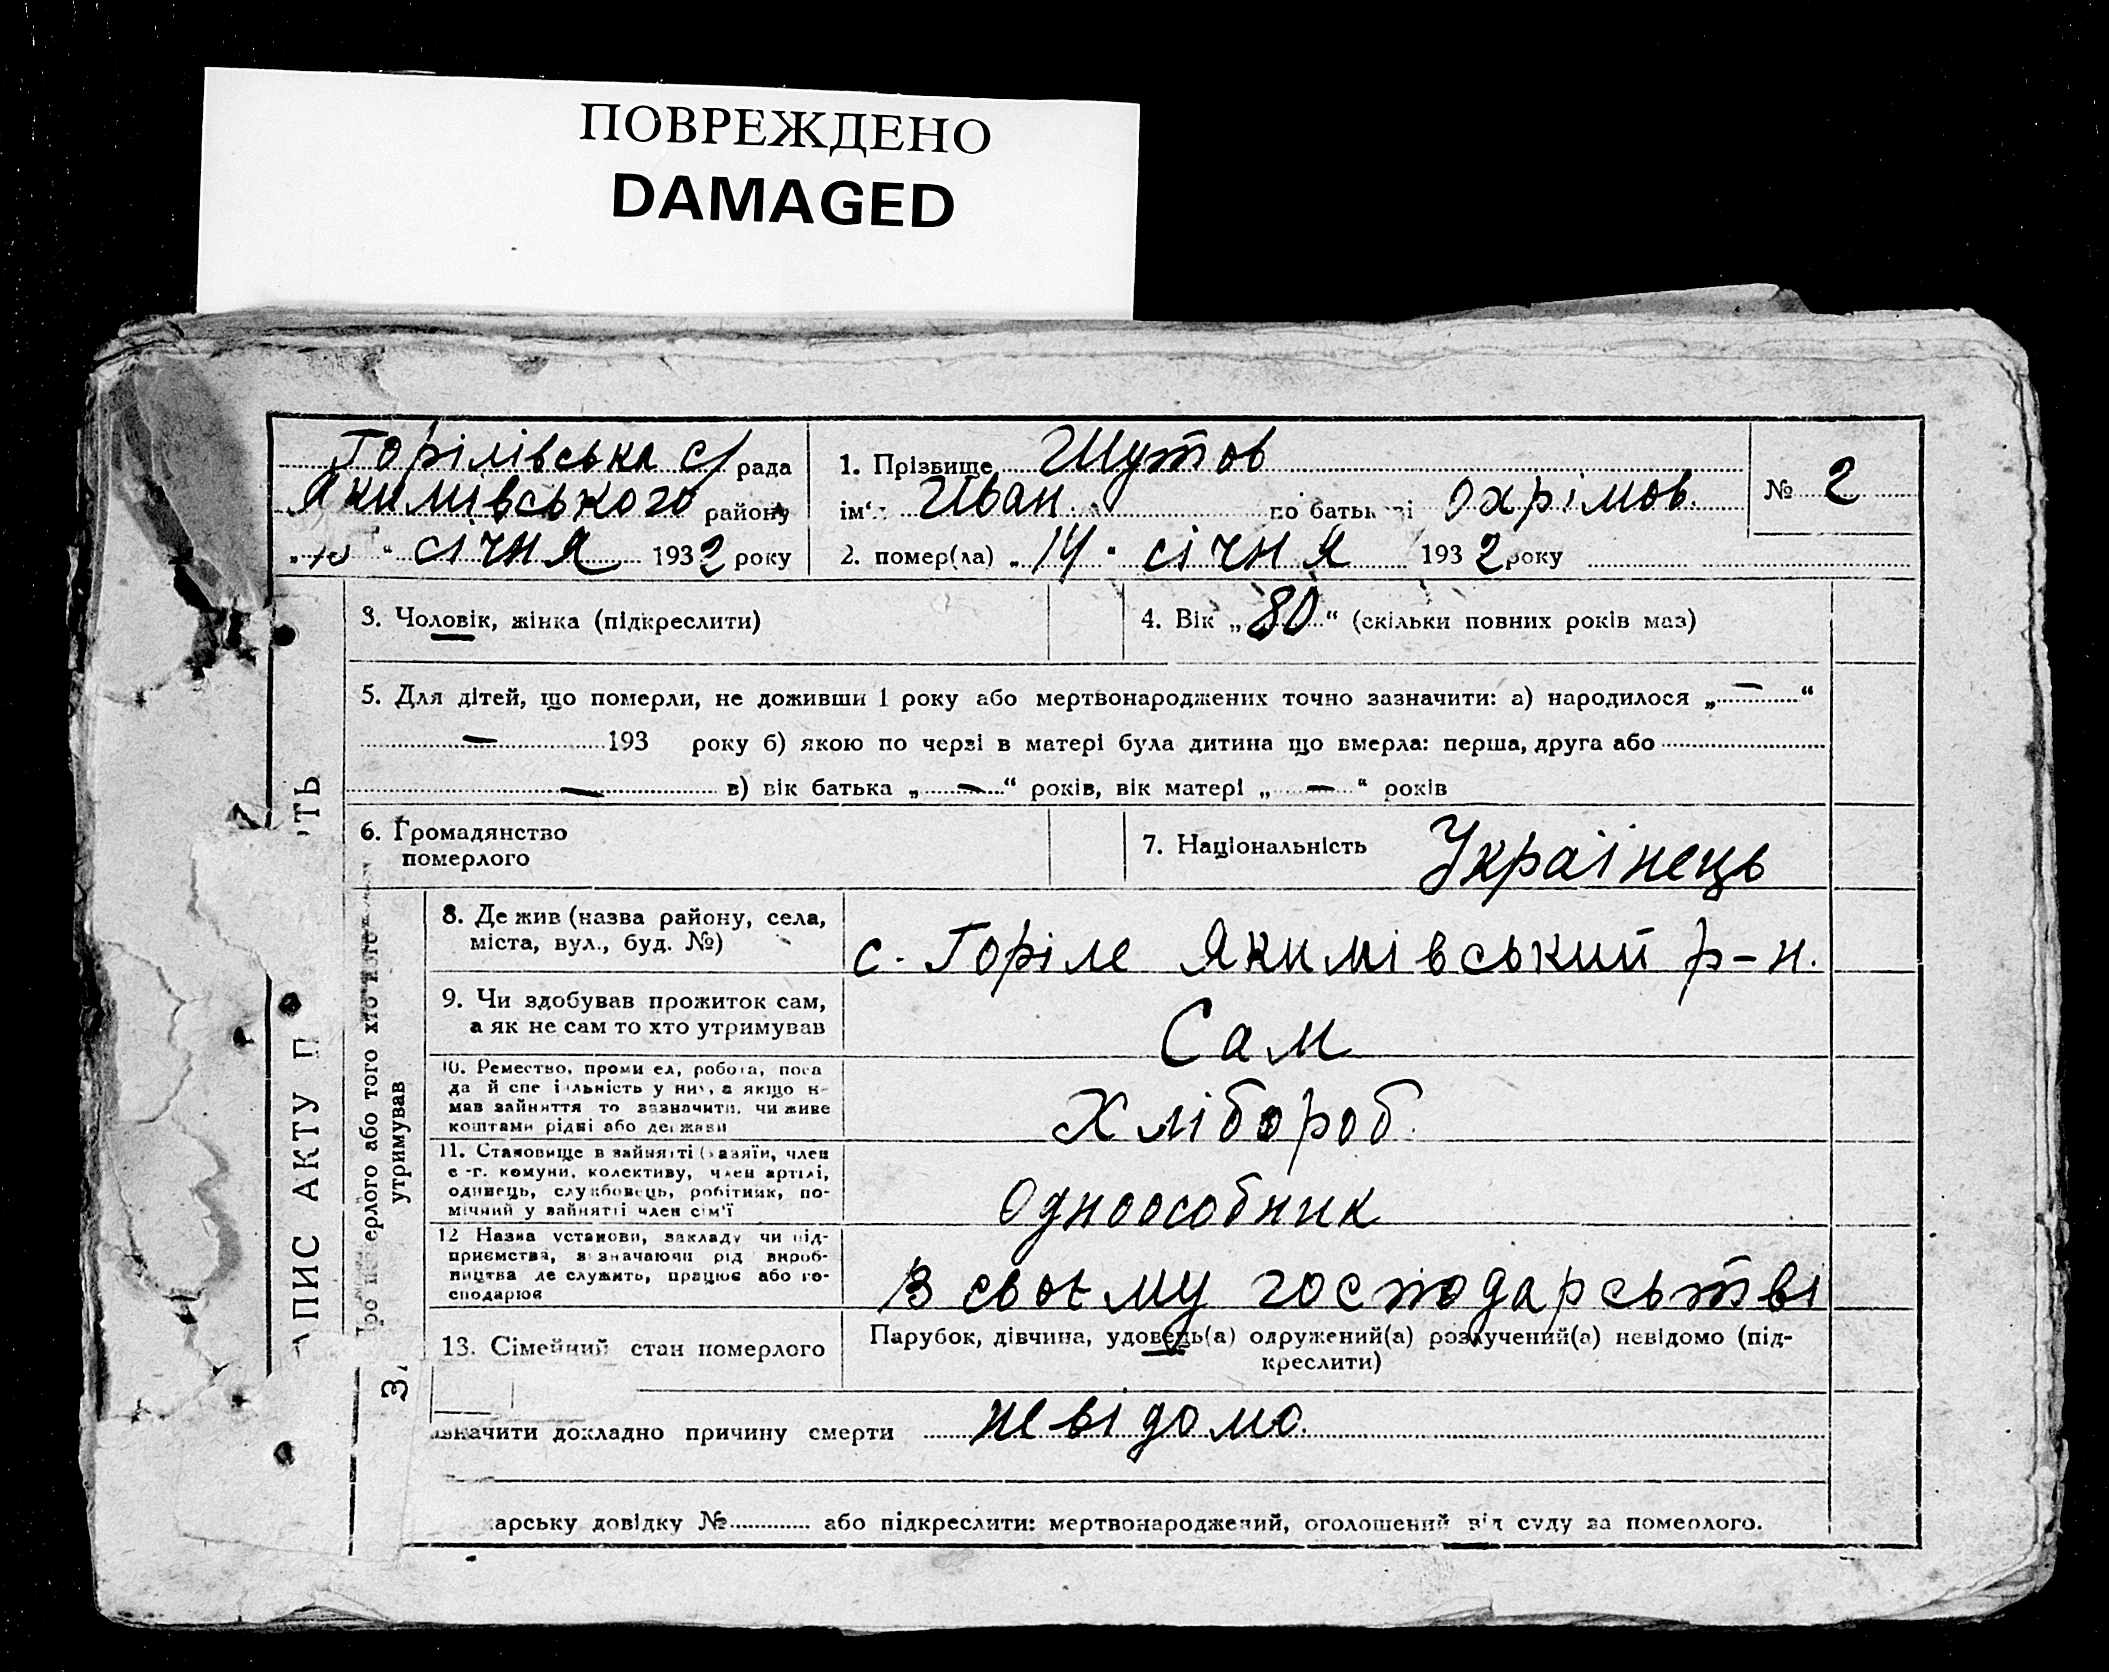 ПОВРЕЖДЕНО
DAMAGED
Горілівська с/рада
Якимівського району
„15“ січня 1932 року
1. Прізвище Шутов
ім‘я Иван по батькові Охрімов.
№ 2
2. помер(ла) „14“ січня 1932 року
3. Чоловік, жінка (підкреслити)
4. Вік „80“ (скільки повних років має)
5. Для дітей, що померли, не доживши 1 року або мертвонароджених точно зазначити: а) народилося „—“
— 193 року б) якою по черзі в матері була дитина що вмерла: перша, друга або
— в) вік батька „—“ років, вік матері „—“ років
6. Громадянство
померлого
7. Національність Українець
8. Де жив (назва району, села,
міста, вул., буд. №)
с. Горіле Якимівський р-н.
9. Чи здобував прожиток сам,
а як не сам то хто утримував
Сам
10. Ремество, промисел, робота, поса
да й спеціяльність у них, а якщо н
мав зайняття то зазначити, чи живе
коштами рідні або держави
Хлібороб.
11. Становище в зайнятті (хазяїн, член
с-г. комуни, колективу, член артілі,
одинець, службовець, робітник, по-
мічний у зайнятті член сім'ї
Одноосібник
12 Назва установи, закладу чи під-
приємства, зазначаючи рід вироб-
ництва де служить, працює або го-
сподарює
В своєму господарстві
13. Сімейний стан померлого
Парубок, дівчина, удовець(а) одружений(а) розлучений(а) невідомо (під-
креслити)
значити докладно причину смерти невідомо.
карську довідку № або підкреслити: мертвонароджений, оголошений від суду за померлого.
АПИС АКТУ П
ТЬ
Про померлого або того хто його
утримував